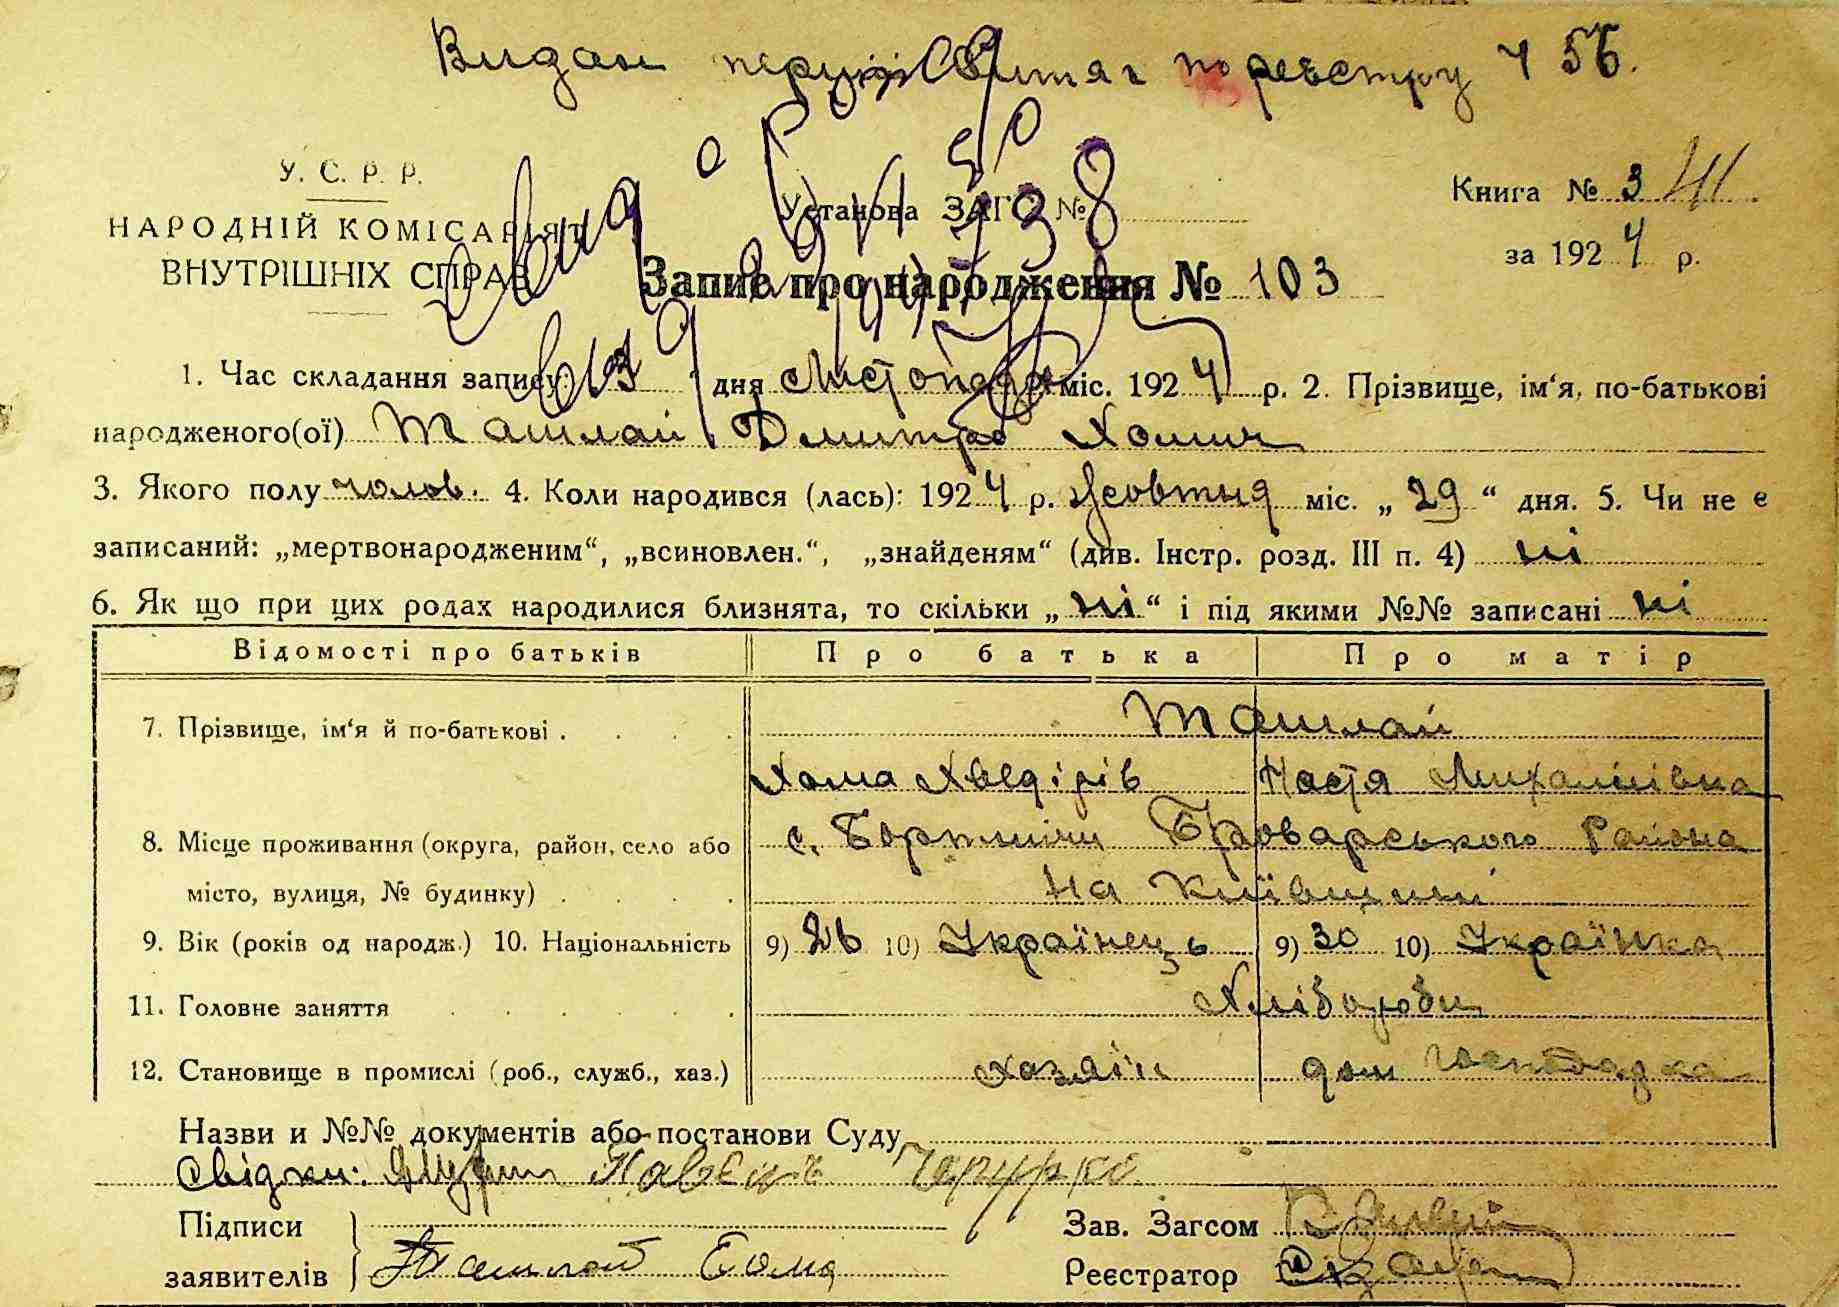 Видан перший витяг по реєстру Ч 56.
У. С. Р. Р.
НАРОДНІЙ КОМІСАРІЯТ
ВНУТРІШНІХ СПРАВ
Установа ЗАГС №
Книга № 3
за 1924 р.
Запис про народження № 103
1. Час складання запису: 3 дня Листопада міс. 1924 р. 2. Прізвище, ім‘я, по-батькові
народженого(ої) Ташлай Дмитро Хомич
3. Якого полу чолов. 4. Коли народився (лась): 1924 р. жовтня міс. „ 29 “ дня. 5. Чи не є
записаний: „мертвонародженим“, „всиновлен.“, „знайденям“ (див. Інстр. розд. III п. 4) ні
6. Як що при цих родах народилися близнята, то скільки „ ні “ і під якими №№ записані ні
Відомості про батьків Про батька Про матір
7. Прізвище, ім‘я й по-батькові . . . . Ташлай
Хома Хведірів Настя Михайлівна
8. Місце проживання (округа, район, село або с. Бортничи Броварського Района
місто, вулиця, № будинку) . . . . на Київщині
9. Вік (років од народж.) 10. Національність 9) 26 10) Українець 9) 30 10) Українка
11. Головне заняття . . . . . Хлібороби
12. Становище в промислі (роб., служб., хаз.) хазяїн дом господарка
Назви и №№ документів або постанови Суду
Свідки:
Підписи
заявителів Ташлай Хома
Зав. Загсом
Реєстратор